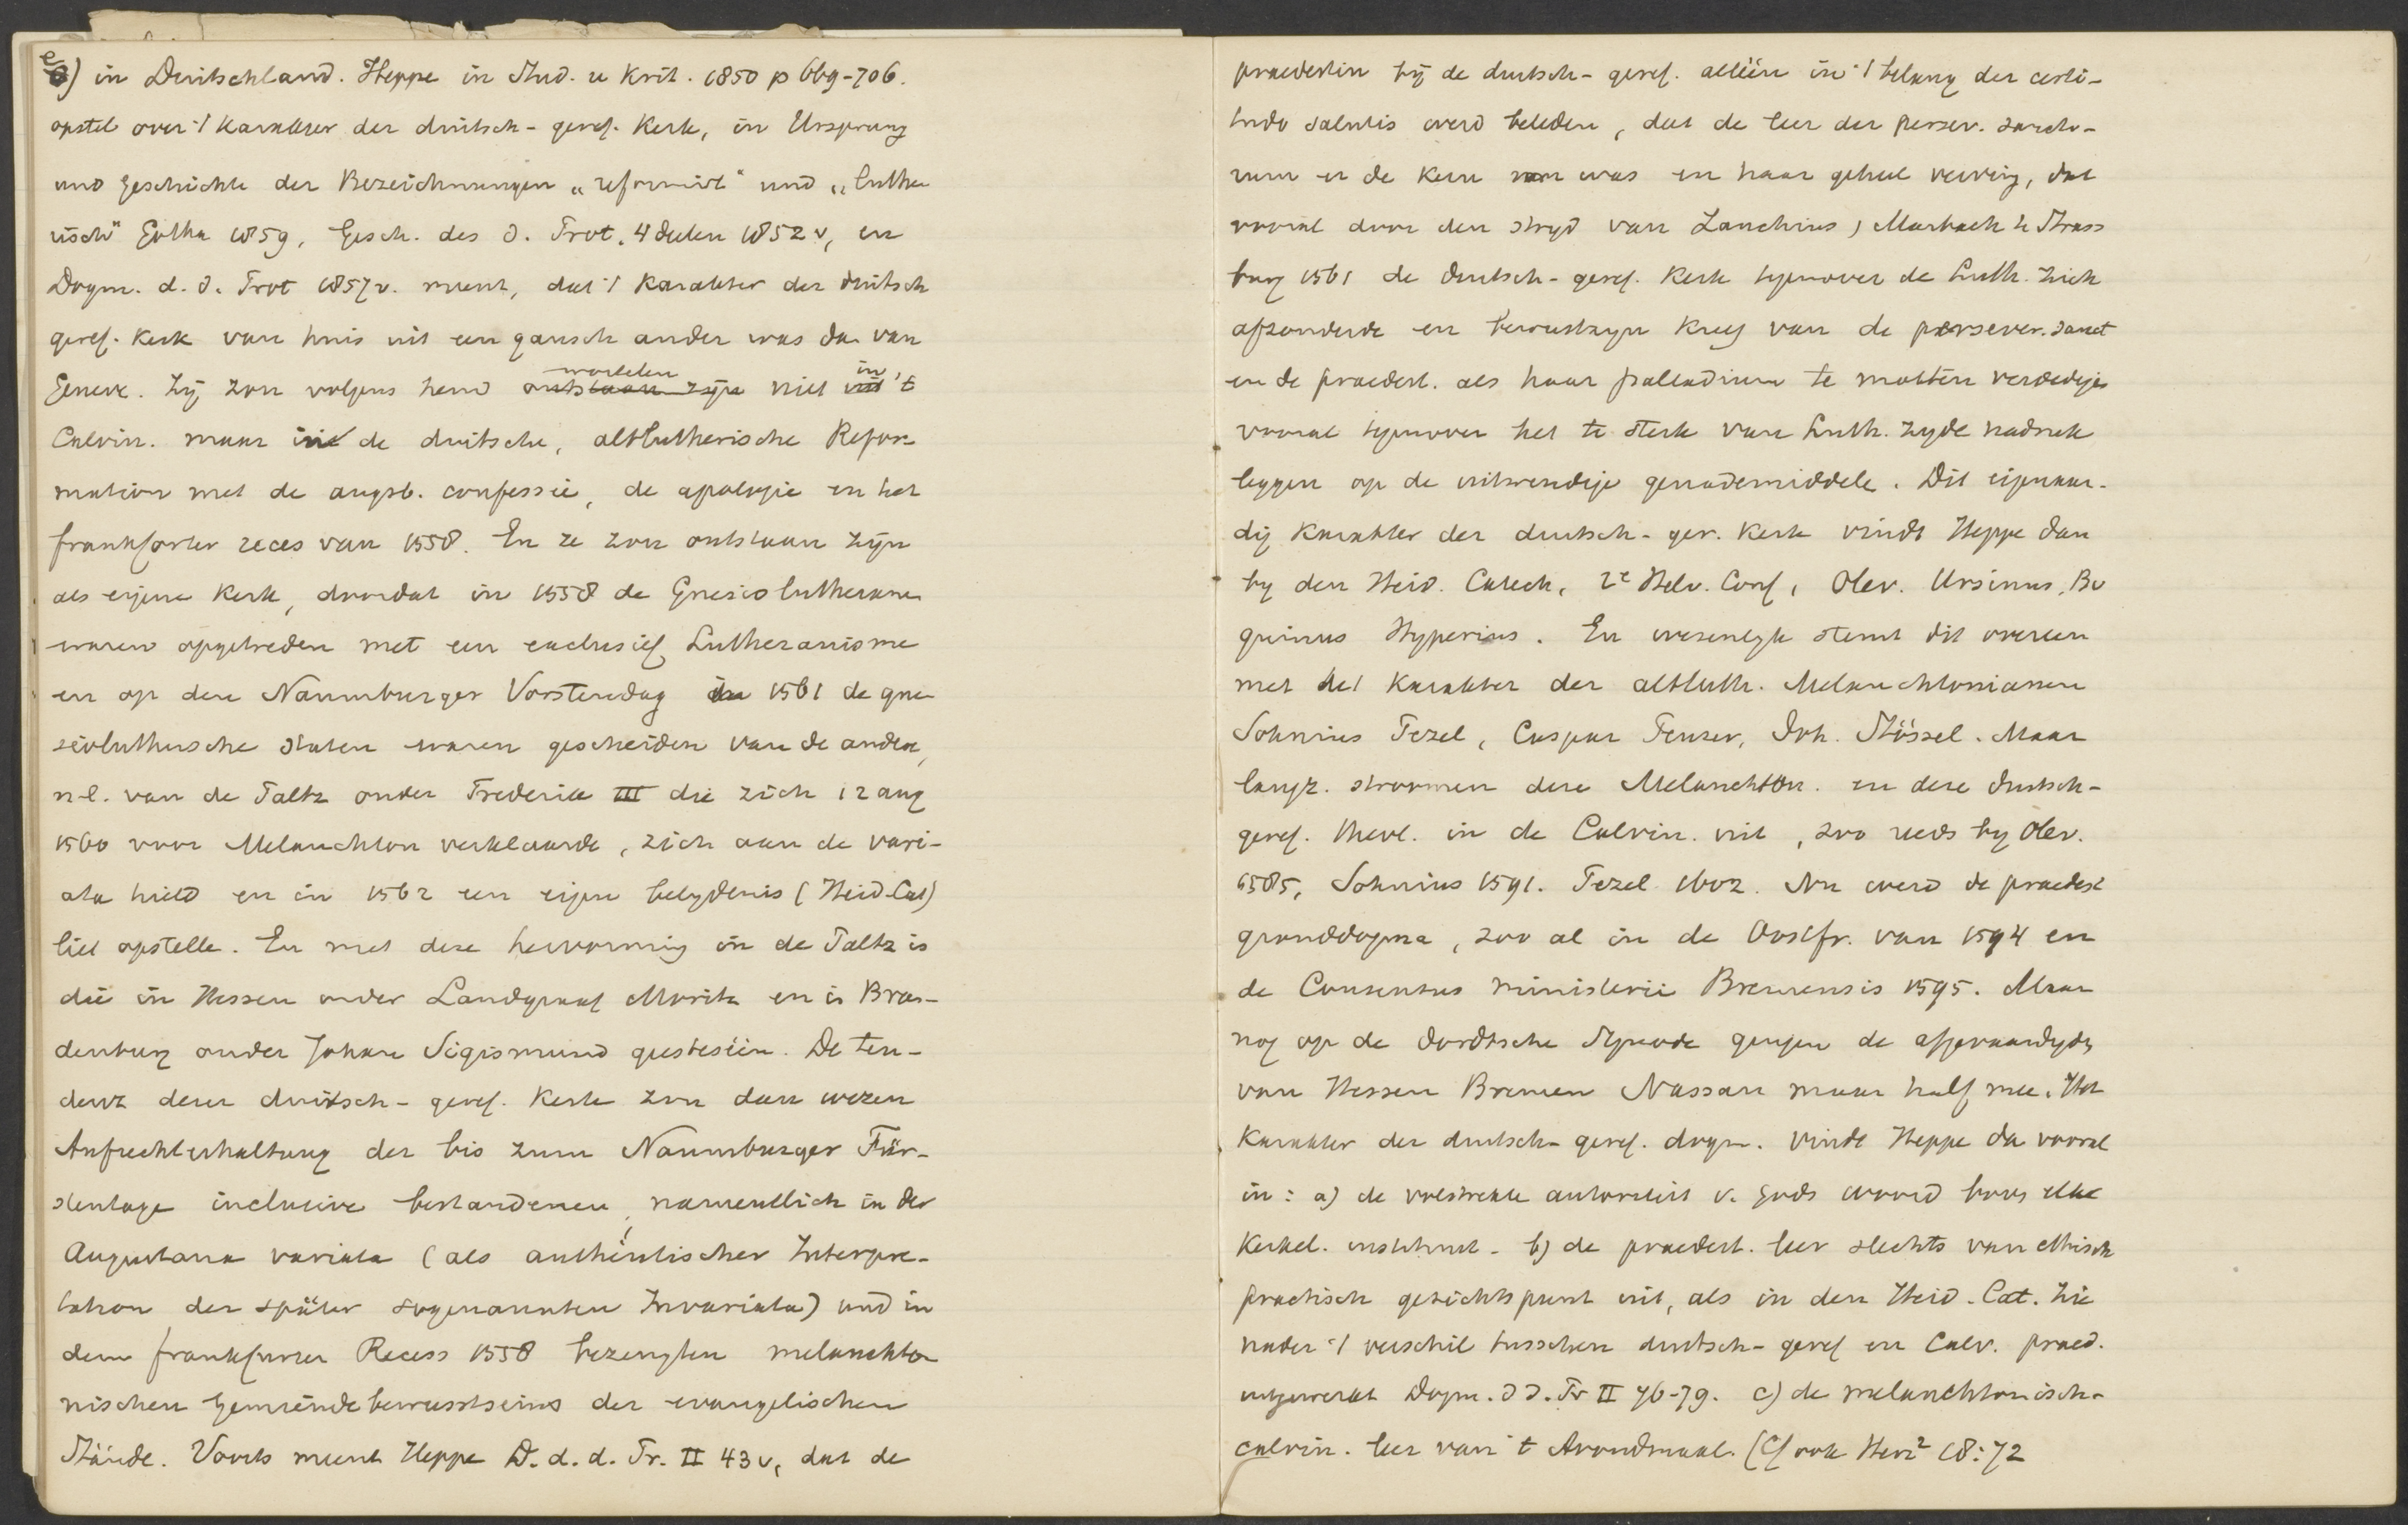 e) in Duitschland. Heppe in Stud. u Krit. 1850 p 669-706.
opstel over 't Karakter der duitsch-geref. Kerk, in Ursprung
und Geschichte der Bezeichnungen „reformirt" und „luthe
risch" Gotha 1859, Gesch. des d. Prot. 4 deelen 1852 v, en
Dogm. d. d. Prot 1857 v. meent, dat 't Karakter der duitsch
geref. Kerk van huis uit een gansch ander was da van
Geneve. Zij zou volgens hem wortelen niet in 't
Calvin. maar in de duitsche, altlutherische Refor
mation met de augsb. confessie, de apologie en het
frankforter reces van 1558. En ze zou ontstaan zijn
als eigene Kerk, doordat in 1558 de Gnesiolutheranen
waren opgetreden met een exclusief Lutheranisme
en op den Naumburger Vorstendag in 1561 de gne
sioluthersche staten waren gescheiden van de andere,
n.l. van de Paltz onder Frederik III die zich 12 aug
1560 voor Melanchton verklaarde, zich aan de vari-
ata hield en in 1562 een eigen belydenis (Heid. Cat)
liet opstelle. En met deze hervorming in de Paltz is
die in Hessen onder Landgraaf Moritz en in Bran-
denburg onder Johan Sigismund geestesëin. De ten-
denz dezer duitsch-geref. Kerk zou dan wezen
Aufrechterhaltung der bis zum Naumburger Für-
stentage inclusive bestandenen, namentlich in der
Augustana variata (als authentischer Interpre-
tation der später sogenannten Invariata) und in
dem frankfurter Recess 1558 bezeugten melanchto
nischen Gemeindebewusstseins der evangelischen
Stände. Voorts meent Heppe D. d. d. Pr. II 43 v, dat de
praedestin bij de duitsch-geref. alleén in 't belang der certi-
tudo salutis werd beleden, dat de leer der persev. sancto-
rum er de Kern van was en haar geheel verving, dat
vooral door den stryd van Zanchius / Marbach te Strass
burg 1561 de duitsch-geref. Kerk tegenover de Luth. zich
afzonderde en bewustzyn kreeg van de persever. sanct
en de praedest. als haar palladium te moeten verdedige
vooral tegenover het te sterk van Luth. zyde nadruk
leggen op de uitwendige genademiddele. Dit eigenaar-
dig Karakter der duitsch-ger. Kerk vindt Heppe dan
by den Heid. Catech, 2e Helv. Conf, Olev. Ursinus, Bo
quinus Hyperius. En wezenlyk stemt dit overeen
met het Karakter der altluth. Melanchtonianen
Sohnius Pezel, Caspar Peucer, Joh. Stössel. Maar
langz. stroomen deze Melanchton. en deze duitsch-
geref. theol. in de Calvin. uit, zoo reeds by Olev.
1585, Sohnius 1591. Pezel 1602. Nu werd de praedest
gronddogma, zoo al in de Oostfr. van 1594 en
de Consensus ministerii Bremensis 1595. Maar
nog op de dordtsche Synode gingen de afgevaardigde
van Hessen Bremen Nassau maar half mee. Het
Karakter der duitsch-geref. dogm. vindt Heppe da vooral
in: a) de volstrekte autoriteit v. Gods woord boven elke
Kerkel. instituut - b) de praedest. leer slechts van ethisch
practisch gezichtspunt uit, als in den Heid. Cat. Zie
nader 't verschil tusschen duitsch-geref en Calv. praed.
uitgewerkt Dogm. d d. Pr II 76-79. c) de melanchtonisch-
calvin. leer van 't Avondmaal. (Cf ook Herz² 18:72